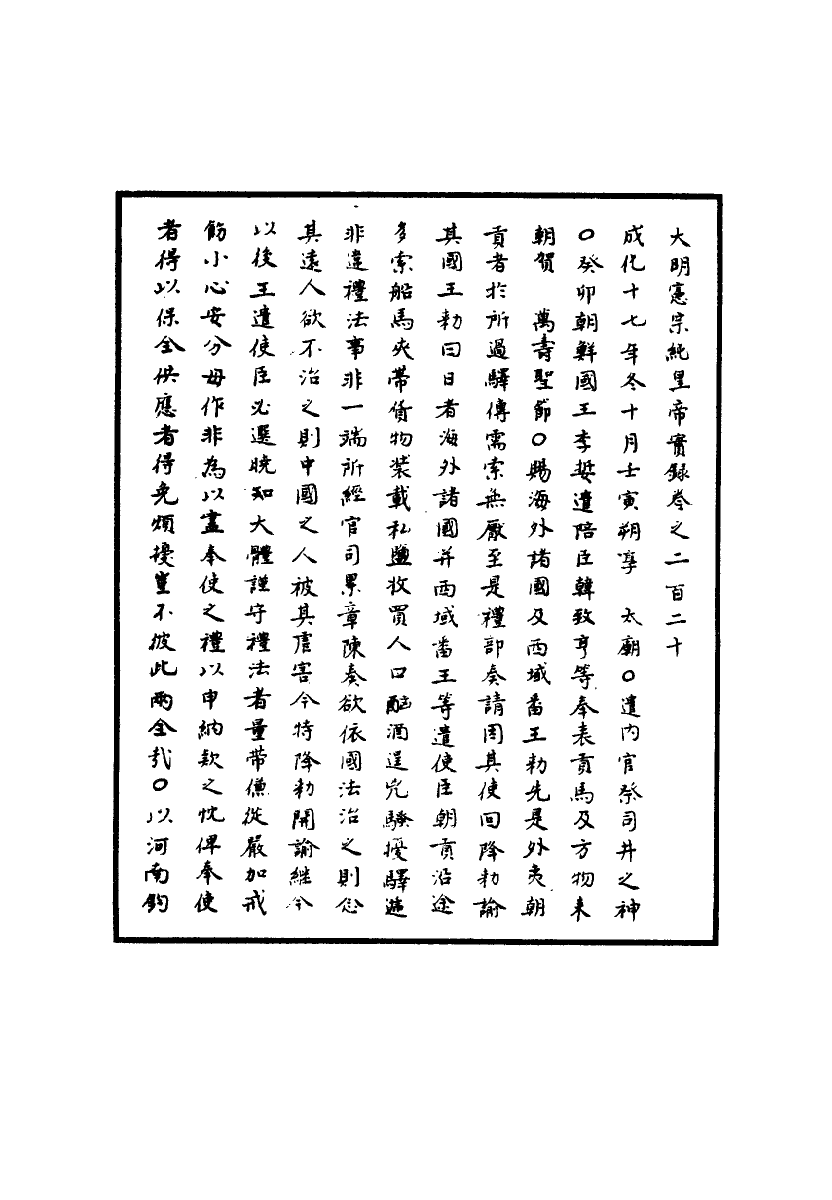 大明憲宗純皇帝實録卷之二百二十
成化十七年冬十月壬寅朔享　太廟○遣内官祭司井之神
○癸卯朝鮮國王李娎遣陪臣韓致亨等奉表貢馬及方物来
朝賀　萬壽聖節○賜海外諸國及西域番王勑先是外夷朝
貢者於所過驛傳需索無厭至是禮部奏請因其使回降勑諭
其國王勑曰日者海外諸國并西域番王等遣使臣朝貢沿途
多索船馬夾帶貨物装載私鹽收買人口酗酒逞兇騷擾驛遞
非違禮法事非一端所經官司累章陳奏欲依國法治之則念
其遠人欲不治之則中國之人被其虐害今特降勑開諭継今
以後王遣使臣必選曉知大體謹守禮法者量帶傔從嚴加戒
飭小心安分毋作非為以盡奉使之禮以申納款之忱俾奉使
者得以保全供應者得免煩擾豈不彼此兩全哉○以河南鈞